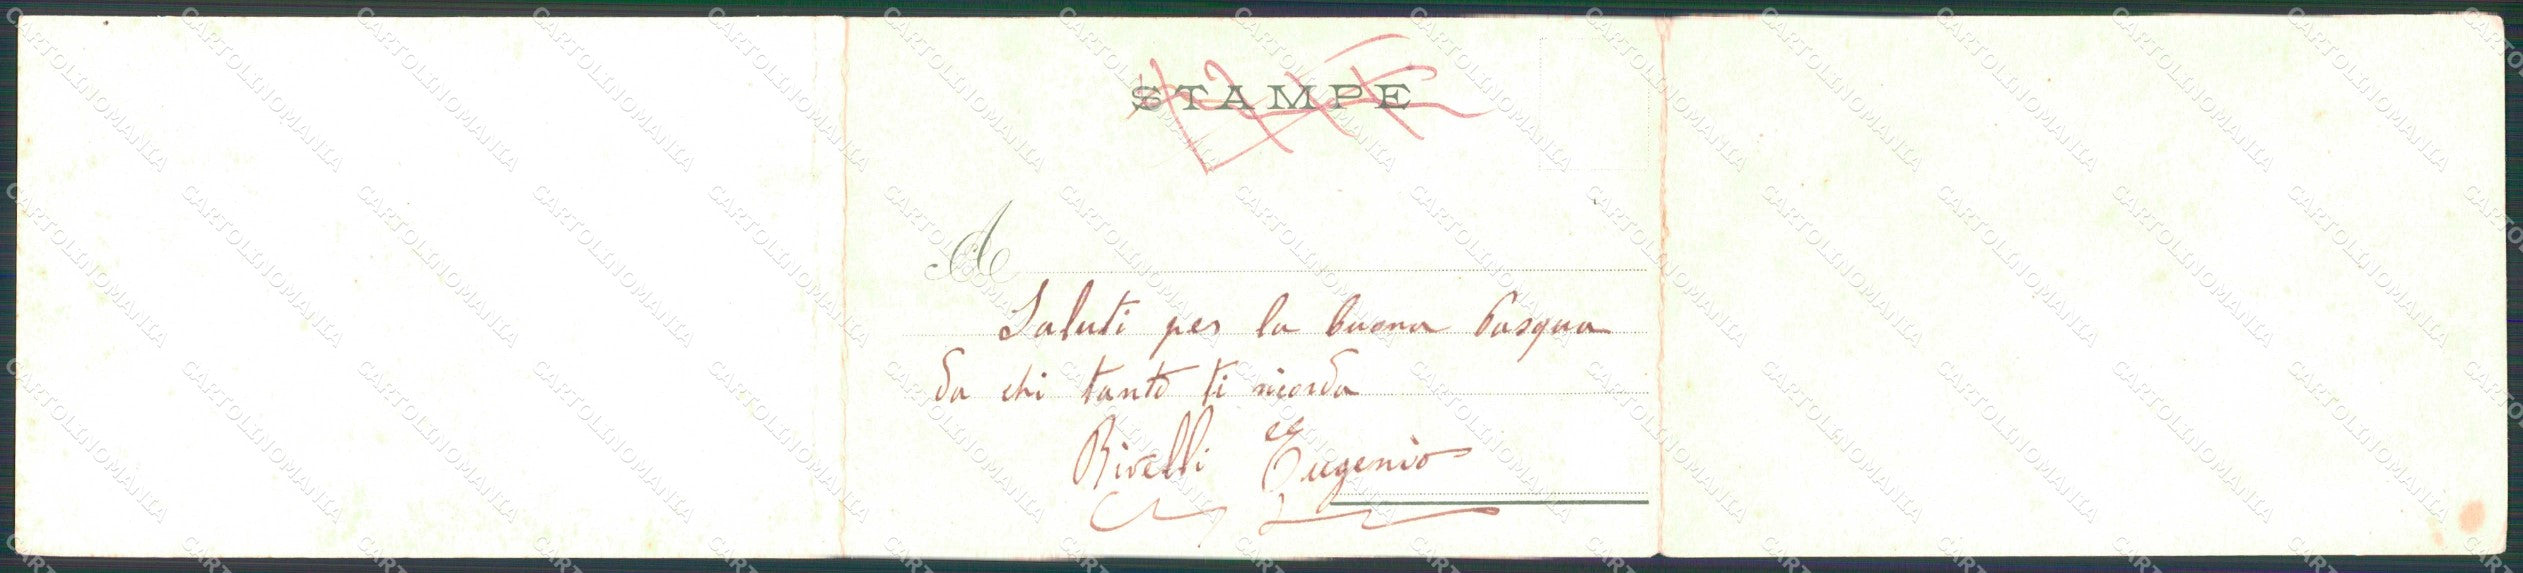 STAMPE
A
Saluti per la buona Pasqua
da chi tanto ti ricorda
Rivelli Eugenio
CARTOLINOMANIA